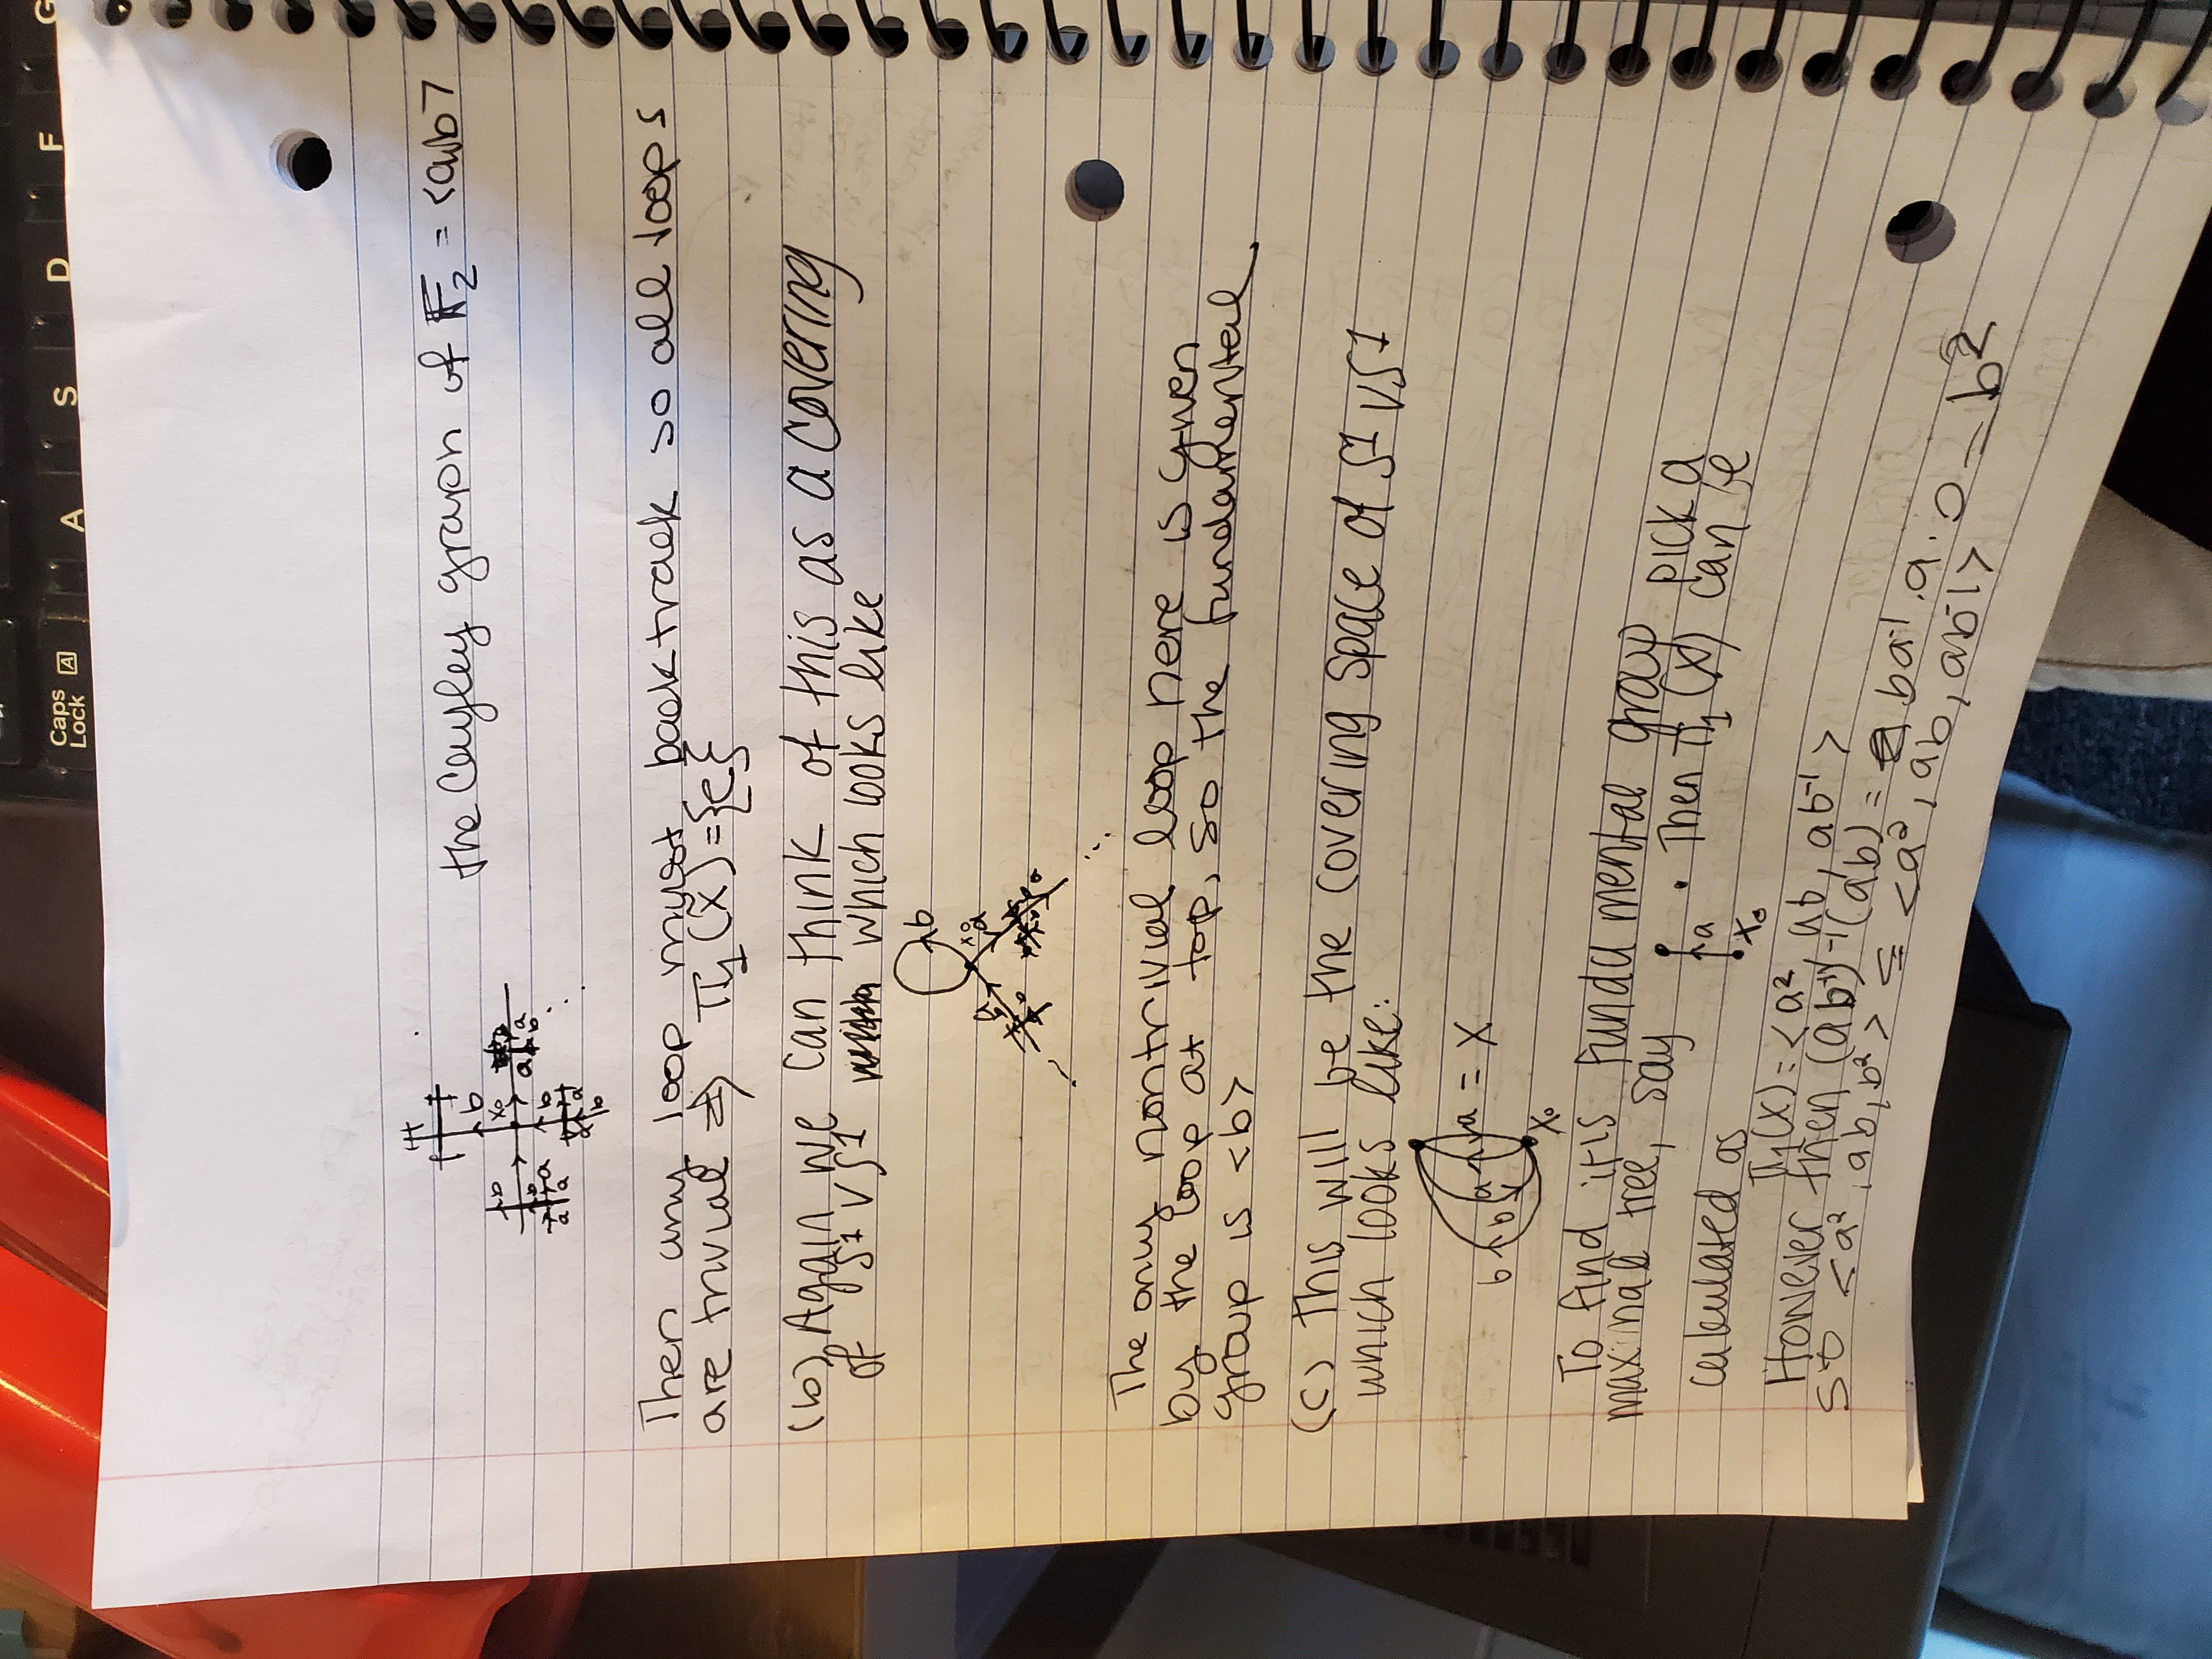 the Cayley graph of F₂ = <a,b>
b
x₀
a
Then any loop must backtrack so all loops
are trivial ⇒ π₁(X) = {e}
(b) Again we can think of this as a covering
of S¹ ∨ S¹ which looks like
b
x₀
a
The only nontrivial loop here is given
by the loop at top, so the fundamental
group is <b>
(c) This will be the covering space of S¹ ∨ S¹
which looks like:
b b a a = X
x₀
To find it's fundamental group pick a
maximal tree, say a x₀ . Then π₁(X) can be
calculated as
π₁(X) = <a², ab, ab⁻¹>
However then (ab⁻¹)⁻¹(ab) = ba⁻¹·a·b = b²
so <a², ab, b²> ≤ <a², ab, ab⁻¹>
Caps
Lock
A
A
S
D
F
G